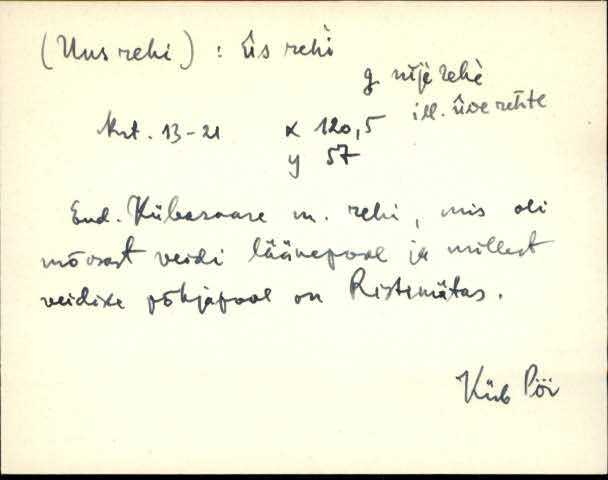 (Uus rehi) : ûs rehì
g. ûìjè rehè
ill. ûve rehte
krt. 13-21 x 120,5
y 57
End. Kübasaare m. rehi, mis oli
mõisast veidi läänepool ja millest
veidike põhjapool on Ristimätas.
Küb Pöi